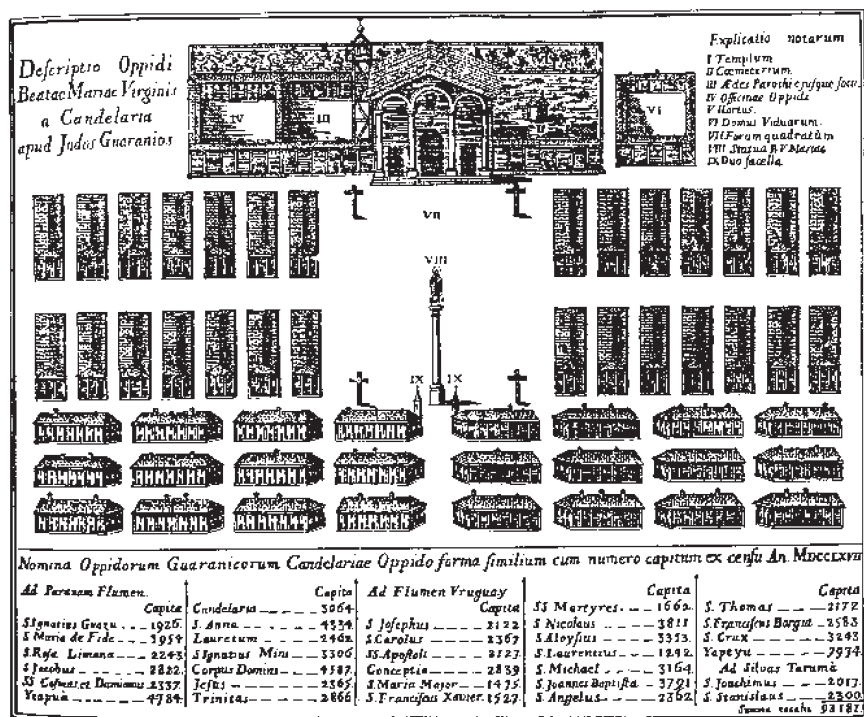 Descriptio Oppidi
Beatae Mariae Virginis
a Candelaria
apud Judos Guaranios
Explicatio notarum
I Templum
II Coemeterium.
III Ædes Parochi ejusque
IV Officinae Oppidi
V Hortus.
VI Domus Viduarum.
VII Forum quadratum
VIII Statua B.V. Mariae
IX Duo sacella
IV
III
VI
VII
VIII
IX
IX
Nomina Oppidorum Guaranicorum Candelariae Oppido forma similium cum numero capitum ex censu An. MDCCLXVII
Ad Paranam Flumen.
Capita
S Ignatius Guazu 1926
S Maria de Fide 3954
S. Rosa Limana 2243
S Jacobus 2822
SS Cosmas et Damianus 2337
Ytapuà 4784
Capita
Candelaria 3064
S. Anna 4334
Lauretum 2462
S Ignatius Mini 3306
Corpus Domini 4587
Jesus 2365
Trinitas 2866
Ad Flumen Vruguay
Capita
S Josephus 2122
S. Carolus 2367
SS. Apostoli 2127
Conceptio 2839
S. Maria Major 1475
S. Franciscus Xavier. 1527
Capita
SS Martyres 1662
S Nicolaus 3811
S Aloysius 3353
S. Laurentius 1242
S. Michael 3164
S. Joannes Baptista 3791
S. Angelus 2362
Capita
S. Thomas 2172
S. Franciscus Borgia 2583
S. Crux 3243
Yapeyu 7974
Ad Silvas Tarumà
S. Joachimus 2017
S. Stanislaus 2300
Summa 93181